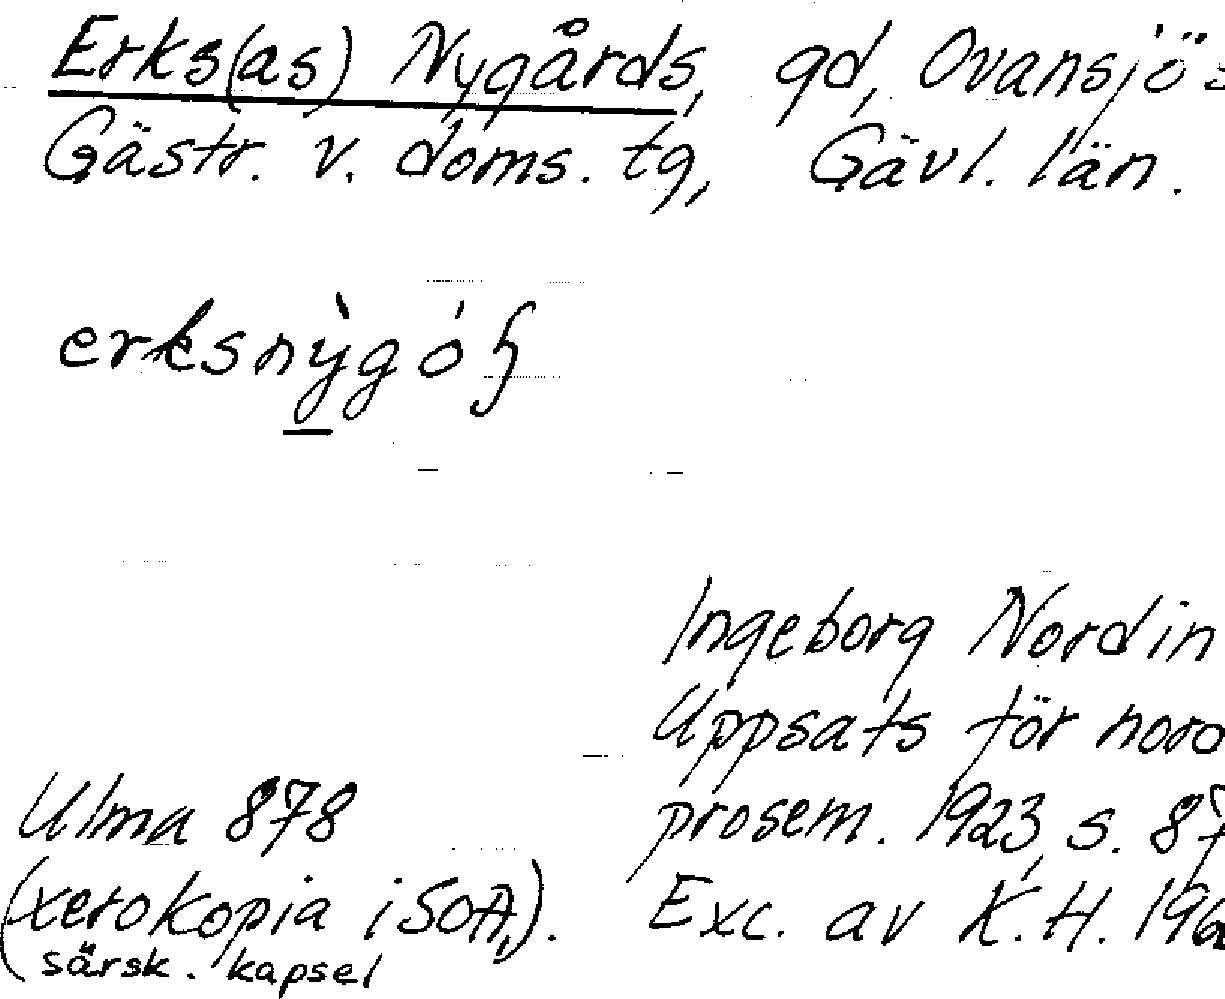 Erks(as) Nygårds, gd, Ovansjö s
Gästr. v. doms. tg, Gävl. län.
Ingeborg Nordin
Uppsats för nord
Ulma 878
prosem. 1923, s. 87
(xerokopia i SOA,).
Exc. av K.H. 196
särsk. kapsel